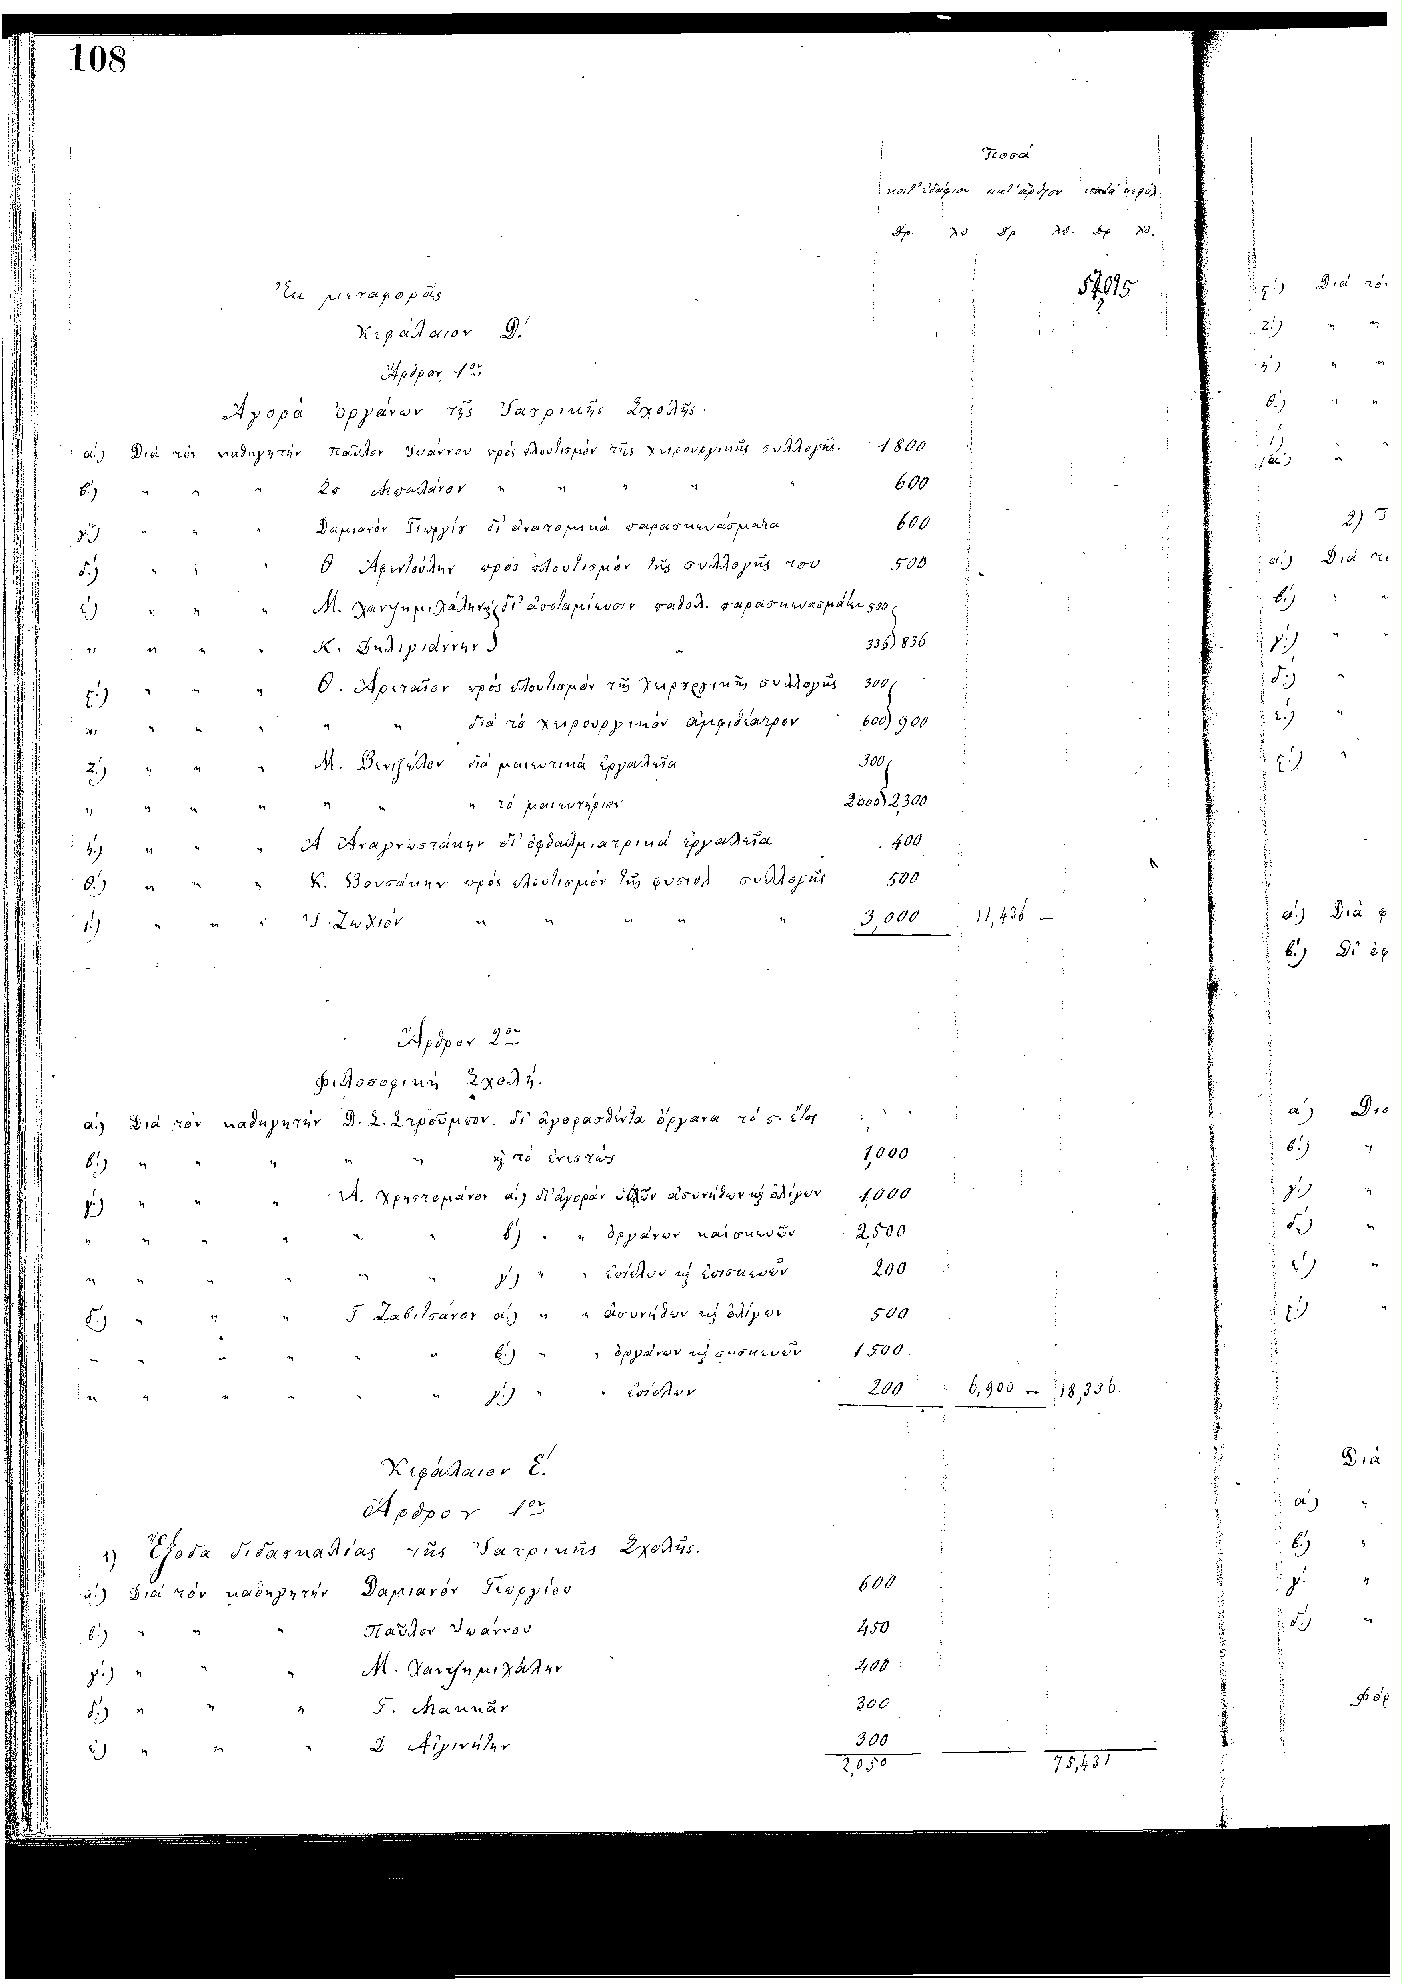 108
Ποσά
κατ' ἐδάφιον κατ' ἄρθρον κατά κεφάλ.
Δρ. λ. Δρ. λ. Δρ. λ.
Ἐκ μεταφορᾶς 57,095
Κεφάλαιον Δ'.
Ἄρθρον 1ον
Ἀγορά ὀργάνων τῆς Ἰατρικῆς Σχολῆς.
α') Διά τόν καθηγητήν Παῦλον Ἰωάννου πρός πλουτισμόν τῆς χειρουργικῆς συλλογῆς. 1800
β') " " " Σπ Μπαλάνον " " " " " 600
γ') " " " Δαμιανόν Γεωργίου δι' ἀνατομικά παρασκευάσματα 600
δ') " " " Θ Ἀφεντούλην πρός πλουτισμόν τῆς συλλογῆς του 500
ε') " " " Μ. Χατζημιχάλην δι' ἀποταμίευσιν παθολ. παρασκευασμάτων 500
" " " " Κ. Δηλιγιάννην " 336 836
ς') " " " Θ. Ἀρεταῖον πρός πλουτισμόν τῆς χειρουργικῆς συλλογῆς 300
" " " " " " διά τό χειρουργικόν ἀμφιθέατρον 600 900
ζ') " " " Μ. Βενιζέλον διά μαιευτικά ἐργαλεῖα 300
" " " " " " " τό μαιευτήριον 2000 2,300
η') " " " Α Ἀναγνωστάκην δι' ὀφθαλμιατρικά ἐργαλεῖα 400
θ') " " " Κ. Βουσάκην πρός πλουτισμόν τῆς φυσιολ συλλογῆς 500
ι') " " " Ἰ. Ζωχιόν " " " " " 3,000 11,436 –
Ἄρθρον 2ον
Φιλοσοφική Σχολή.
α') Διά τόν καθηγητήν Δ. Σ. Στροῦμπον. δι' ἀγορασθέντα ὄργανα τό π. ἔτος
β') " " " " " κ τό ἐνεστώς 1,000
γ') " " " Ἀ. Χρηστομάνον α') δι' ἀγοράν ὑλῶν ἀσυνήθων κ ὀλίγων 1,000
" " " " " " β') " " ὀργάνων καί σκευῶν 2,500
" " " " " " γ') " " ἐπίπλων κ ἐπισκευῶν 200
δ') " " " Γ Ζαβιτσάνον α') " " ἀσυνήθων κ ὀλίγων 500
" " " " " " β') " " ὀργάνων κ συσκευῶν 1500
" " " " " " γ') " " ἐπίπλων 200 6,900 – 18,336
Κεφάλαιον Ε'.
Ἄρθρον 1ον
1) Ἔξοδα διδασκαλίας τῆς Ἰατρικῆς Σχολῆς.
α') Διά τόν καθηγητήν Δαμιανόν Γεωργίου 600
β') " " " Παῦλον Ἰωάννου 450
γ') " " " Μ. Χατζημιχάλην 400
δ') " " " Γ. Μακκᾶν 300
ε') " " " Δ Αἰγινήτην 300
2,050 75,431